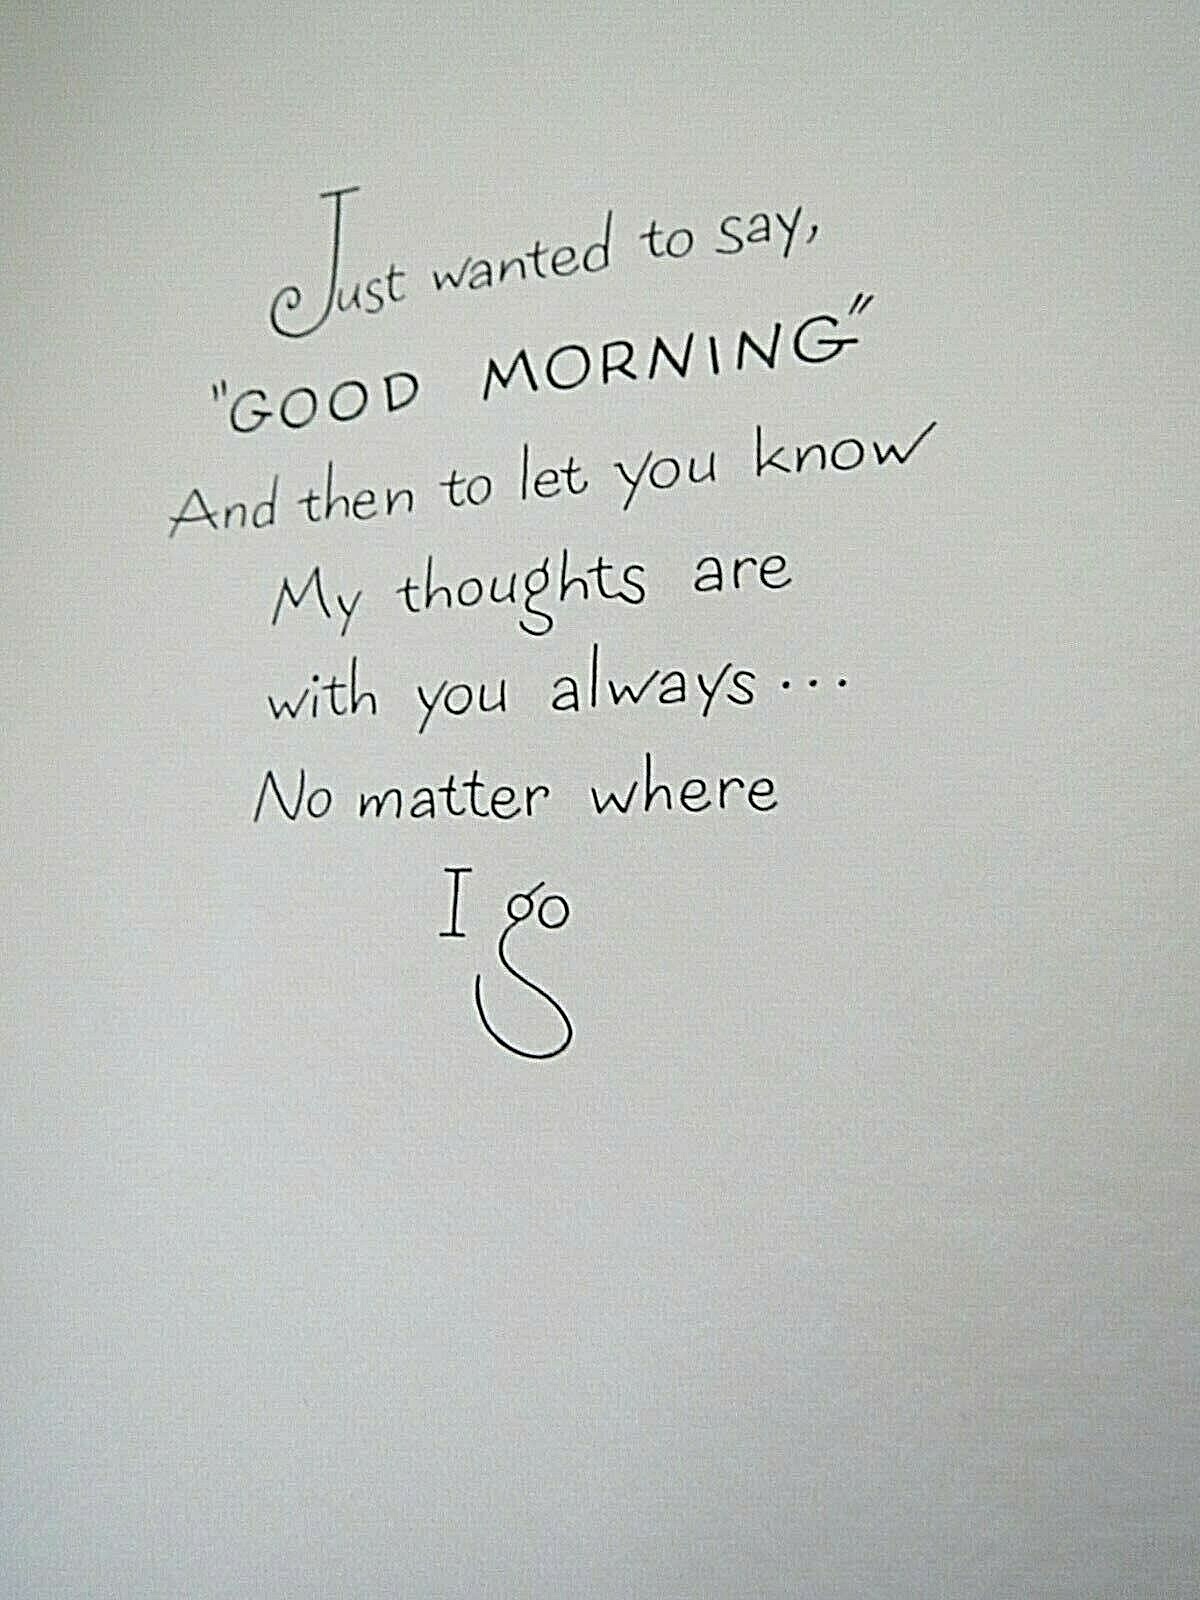 Just wanted to say,
"GOOD MORNING"
And then to let you know
My thoughts are
with you always...
No matter where
I go